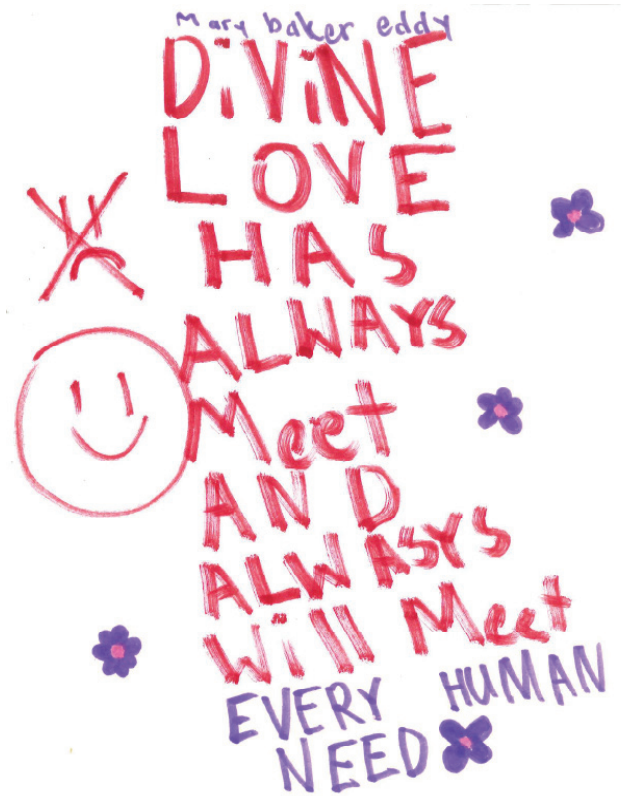 Mary baker eddy
DiViNE
LOVE
HAS
ALWAYS
Meet
AND
ALWASYS
Will Meet
EVERY HUMAN
NEED